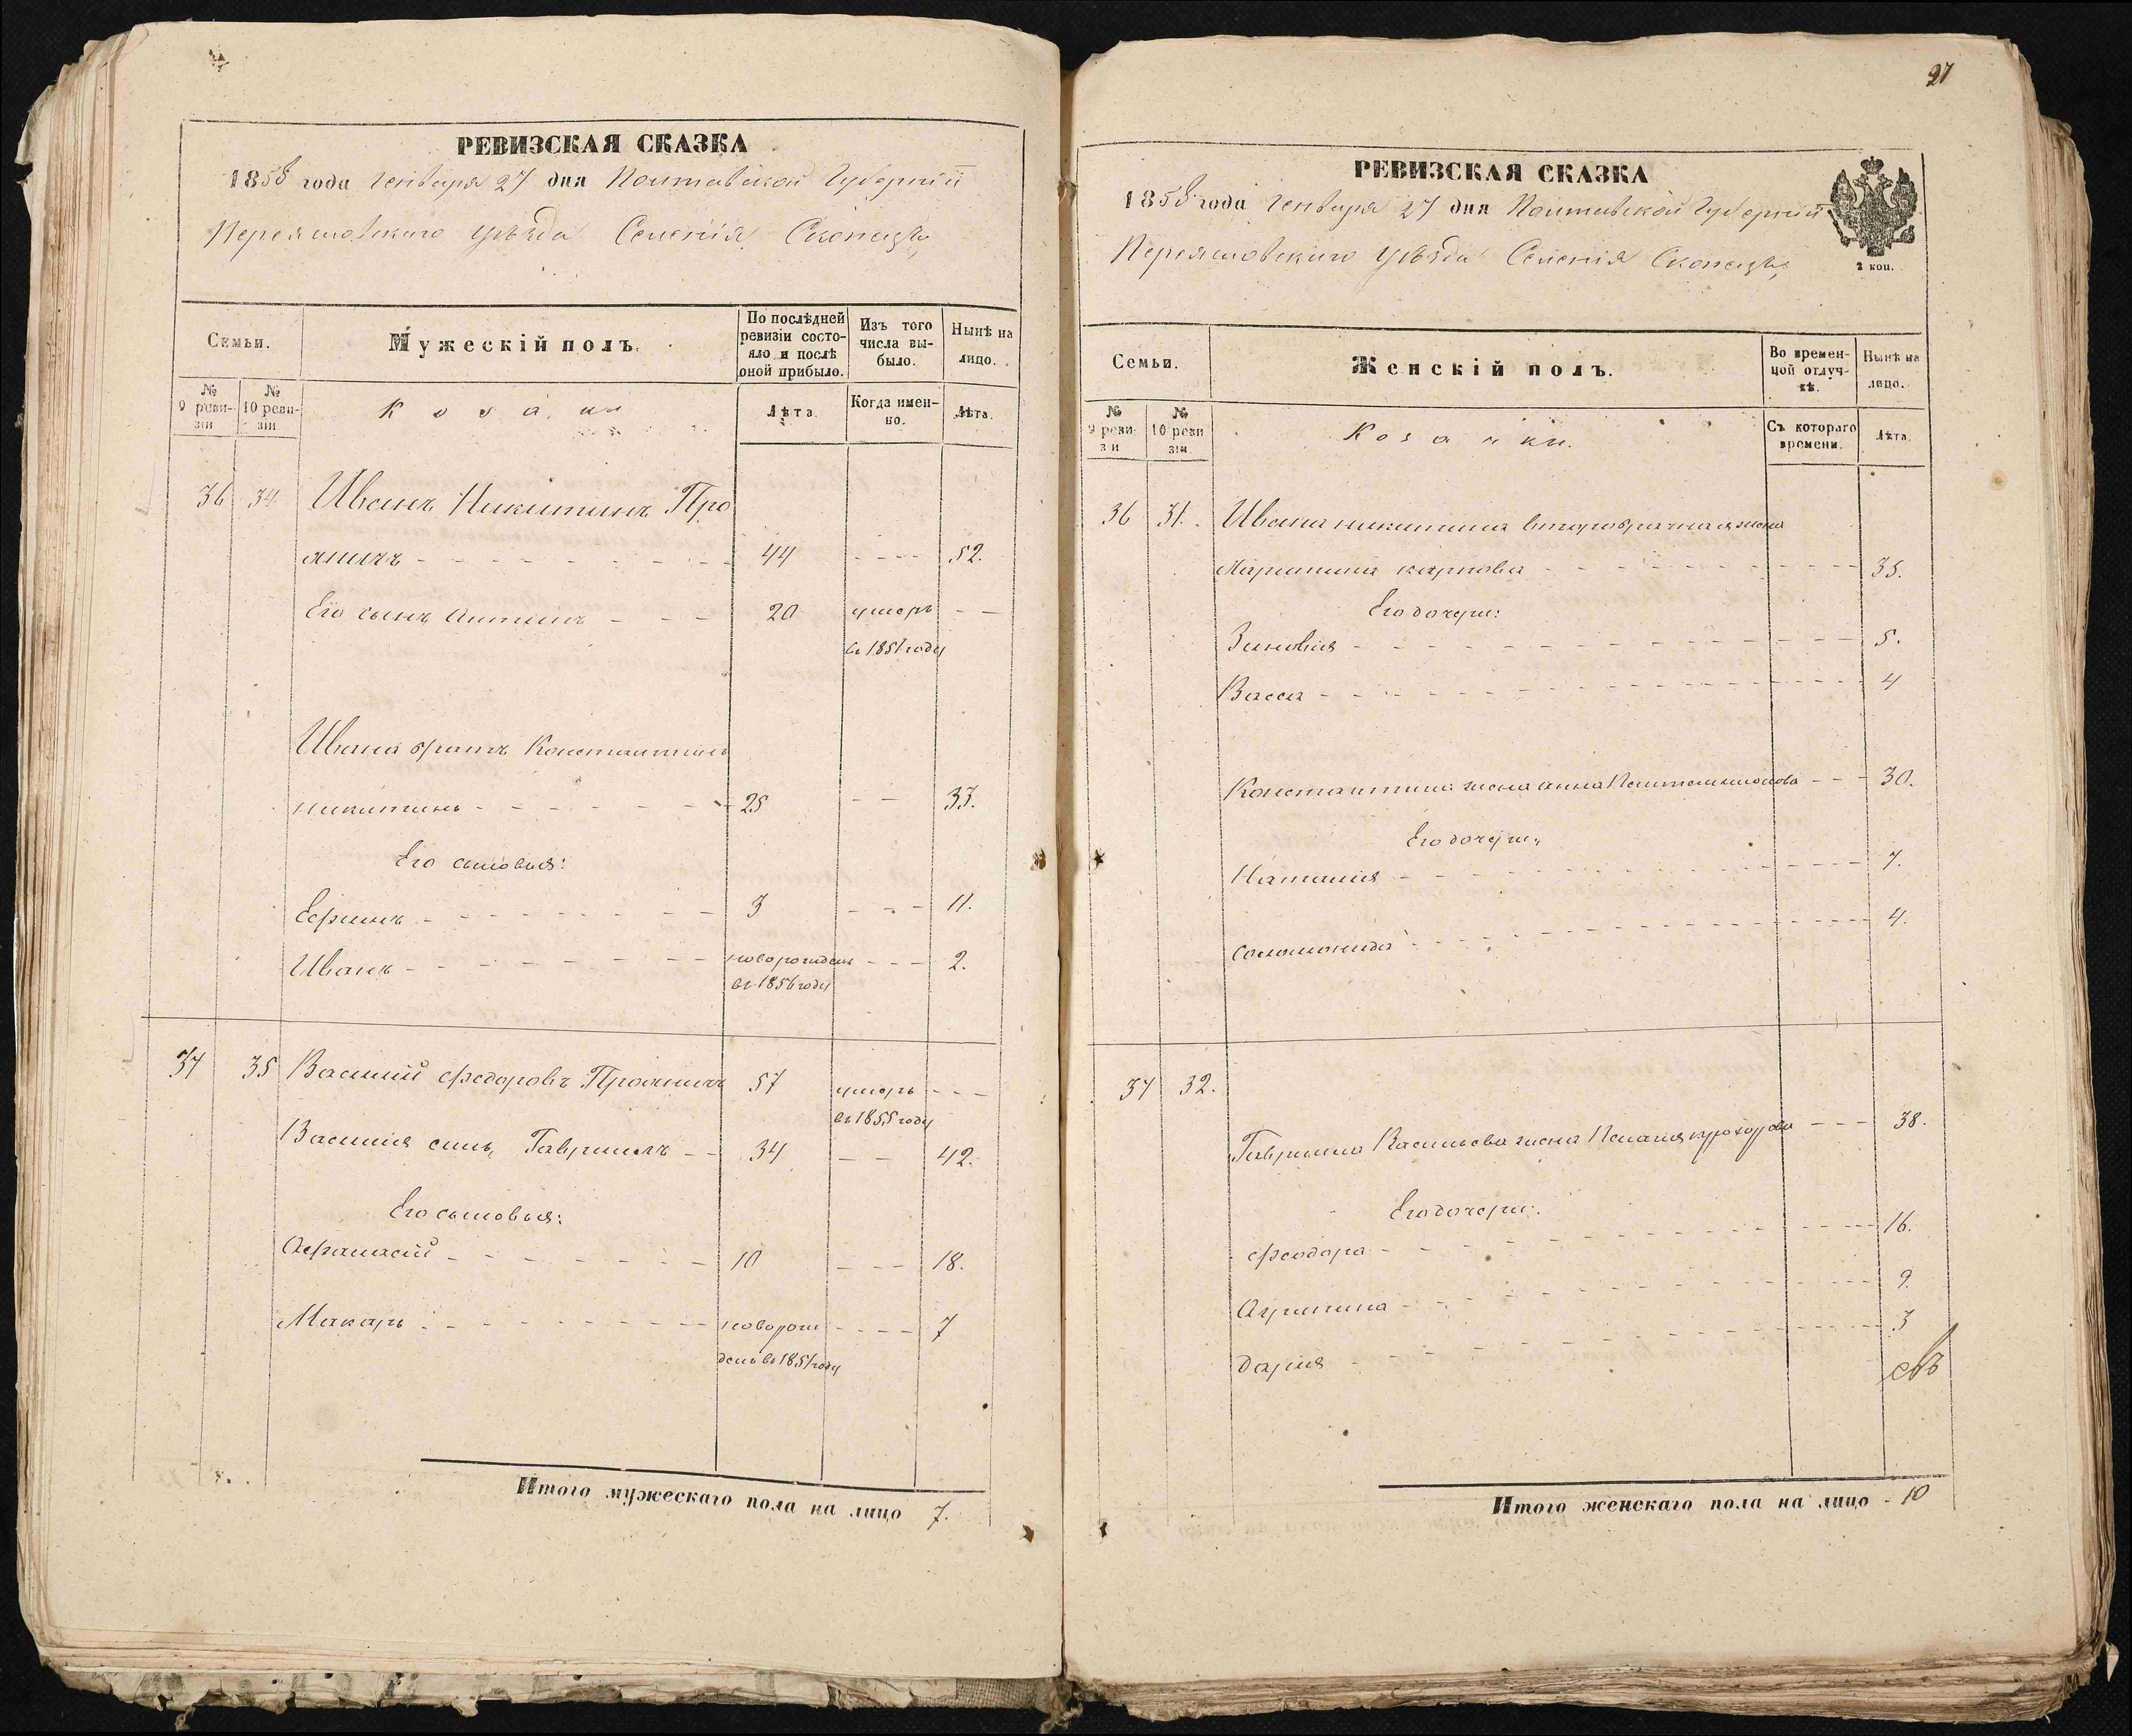 РЕВИЗСКАЯ СКАЗКА
1858 года Генваря 27 дня Полтавской Губернiи
Переяславскаго уѣзда Селенiя Скопецкъ
Семьи.
Мужескiй полъ.
По послѣдней ревизiи состояло и послѣ оной прибыло.
Изъ того числа выбыло.
Нынѣ на лицо.
№ 9 ревизiи
№ 10 ревизiи
Козаки
Лѣта.
Когда именно.
Лѣта.
36 34 Иванъ Никитинъ Про
яничъ 44 52.
Его сынъ Антипъ 20 умеръ
въ 1851 году
Ивана братъ Константинъ
Никитинъ 25 33.
Его сыновья:
Ефимъ 3 11.
Иванъ новорожденъ 2.
въ 1856 году
37 35 Василiй Федоровъ Прояничъ 57 умеръ
въ 1855 году
Василiя сынъ Гаврiилъ 34 42.
Его сыновья:
Афанасiй 10 18.
Макаръ новорож 7
денъ въ 1851 году
Итого мужескаго пола на лицо 7.
27
РЕВИЗСКАЯ СКАЗКА
1858 года Генваря 27 дня Полтавской Губернiи
Переяславскаго уѣзда Селенiя Скопецкъ
2 коп.
Семьи.
Женскiй полъ.
Во временной отлучкѣ.
Нынѣ на лицо.
№ 9 ревизiи
№ 10 ревизiи
Козачки.
Съ котораго времени.
Лѣта.
36 31. Ивана Никитина второбрачная жена
Карпова 35.
Его дочери:
Зиновiя 5.
Васса 4
Константина жена Анна Пантелимонова 30.
Его дочери:
Наталiя 7.
Соломонида 4.
37 32.
Гаврiила Васильева жена Пелагiя Прохорова 38.
Его дочери:
Феодора 16.
Агрипина 9.
Дарiя 3
Итого женскаго пола на лицо - 10